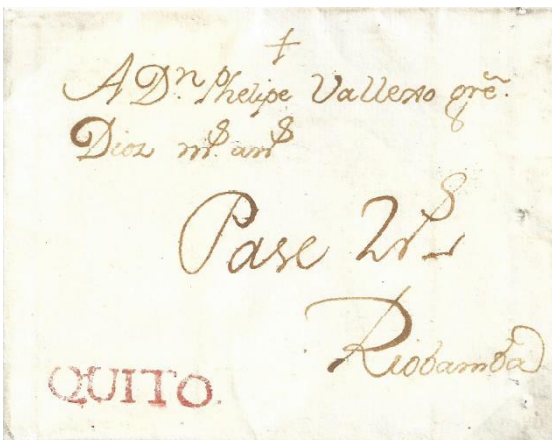 A Dn. Phelipe Vallexo gre.
Dioz ms. ans.
Pase 2rs
Riobamba
QUITO.